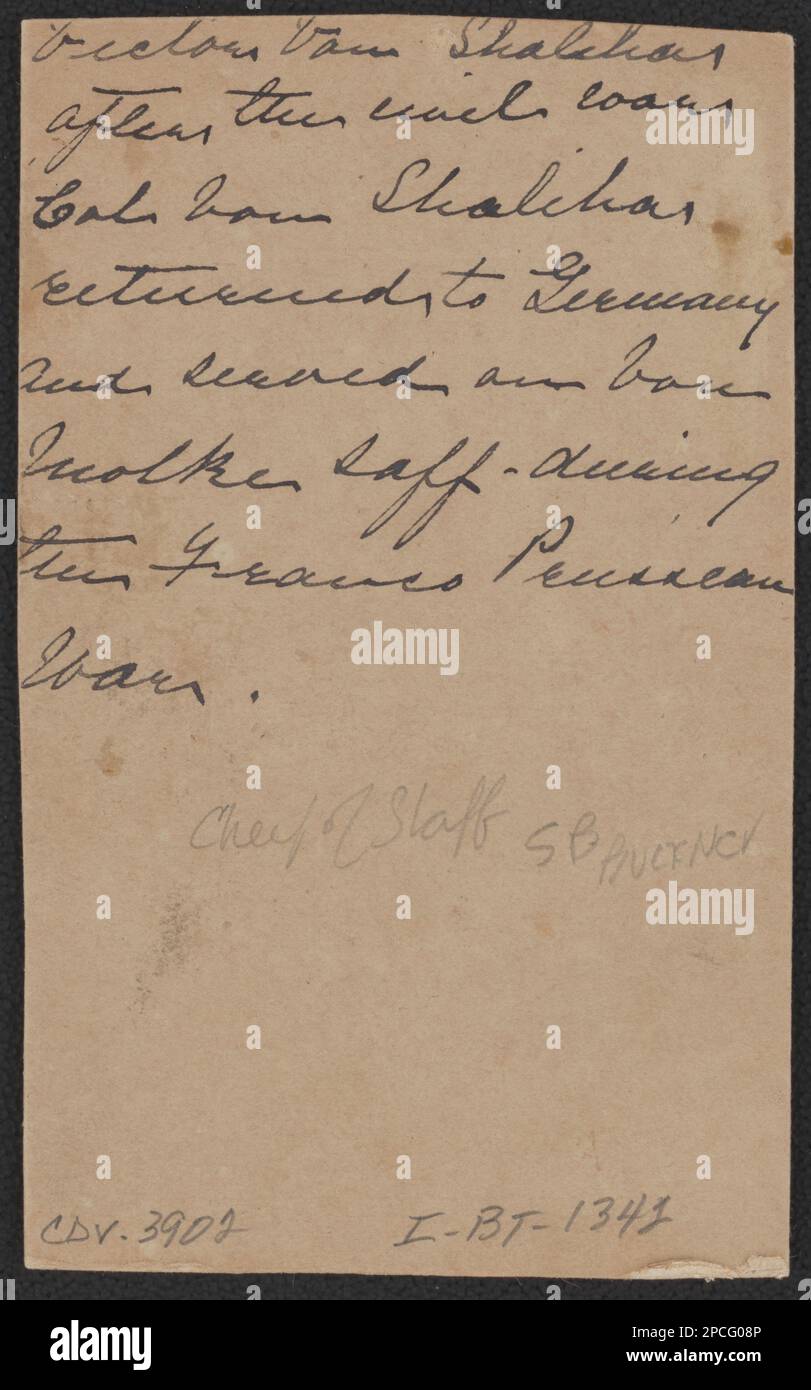 Victor Von Shalihar
after the civil war
Col Von Shalihar
returned to Germany
and served on Von
Molke saff - during
the Franco Prussian
War.
Cheif of Staff SB BUCKNER
CDV. 3902 I-BT-1341
a
alamy
alamy
alamy
alamy
Image ID: 2PCG08P
www.alamy.com